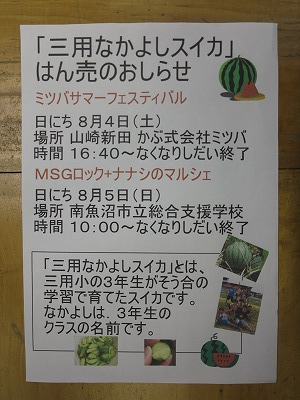 「三用なかよしスイカ」
はん売のおしらせ
ミツバサマーフェスティバル
日にち 8月4日（土）
場所 山崎新田 かぶ式会社ミツバ
時間 16:40～なくなりしだい終了
MSGロック+ナナシのマルシェ
日にち 8月5日（日）
場所 南魚沼市立総合支援学校
時間 10:00～なくなりしだい終了
「三用なかよしスイカ」とは、
三用小の3年生がそう合の
学習で育てたスイカです。
なかよしは．3年生の
クラスの名前です。